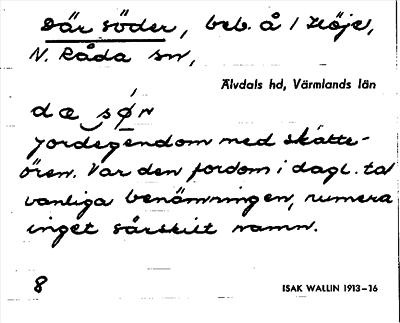 Där söder, beb. å 1 Höje,
N. Råda sn,
Älvdals hd, Värmlands län
dæ sǿn
Jordegendom med skatte-
ören. Var den fordom i dagl. tal
vanliga benämningen, numera
inget särskilt namn.
8
ISAK WALLIN 1913–16